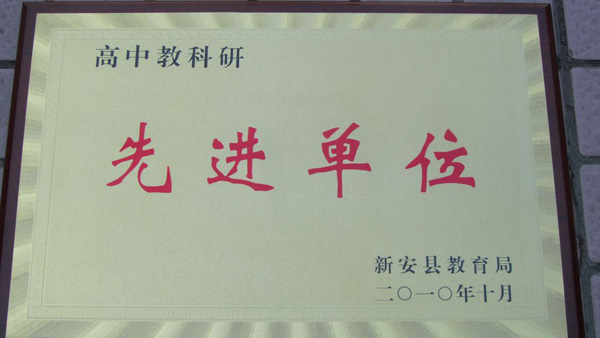 高中教科研
先进单位
新安县教育局
二〇一〇年十月